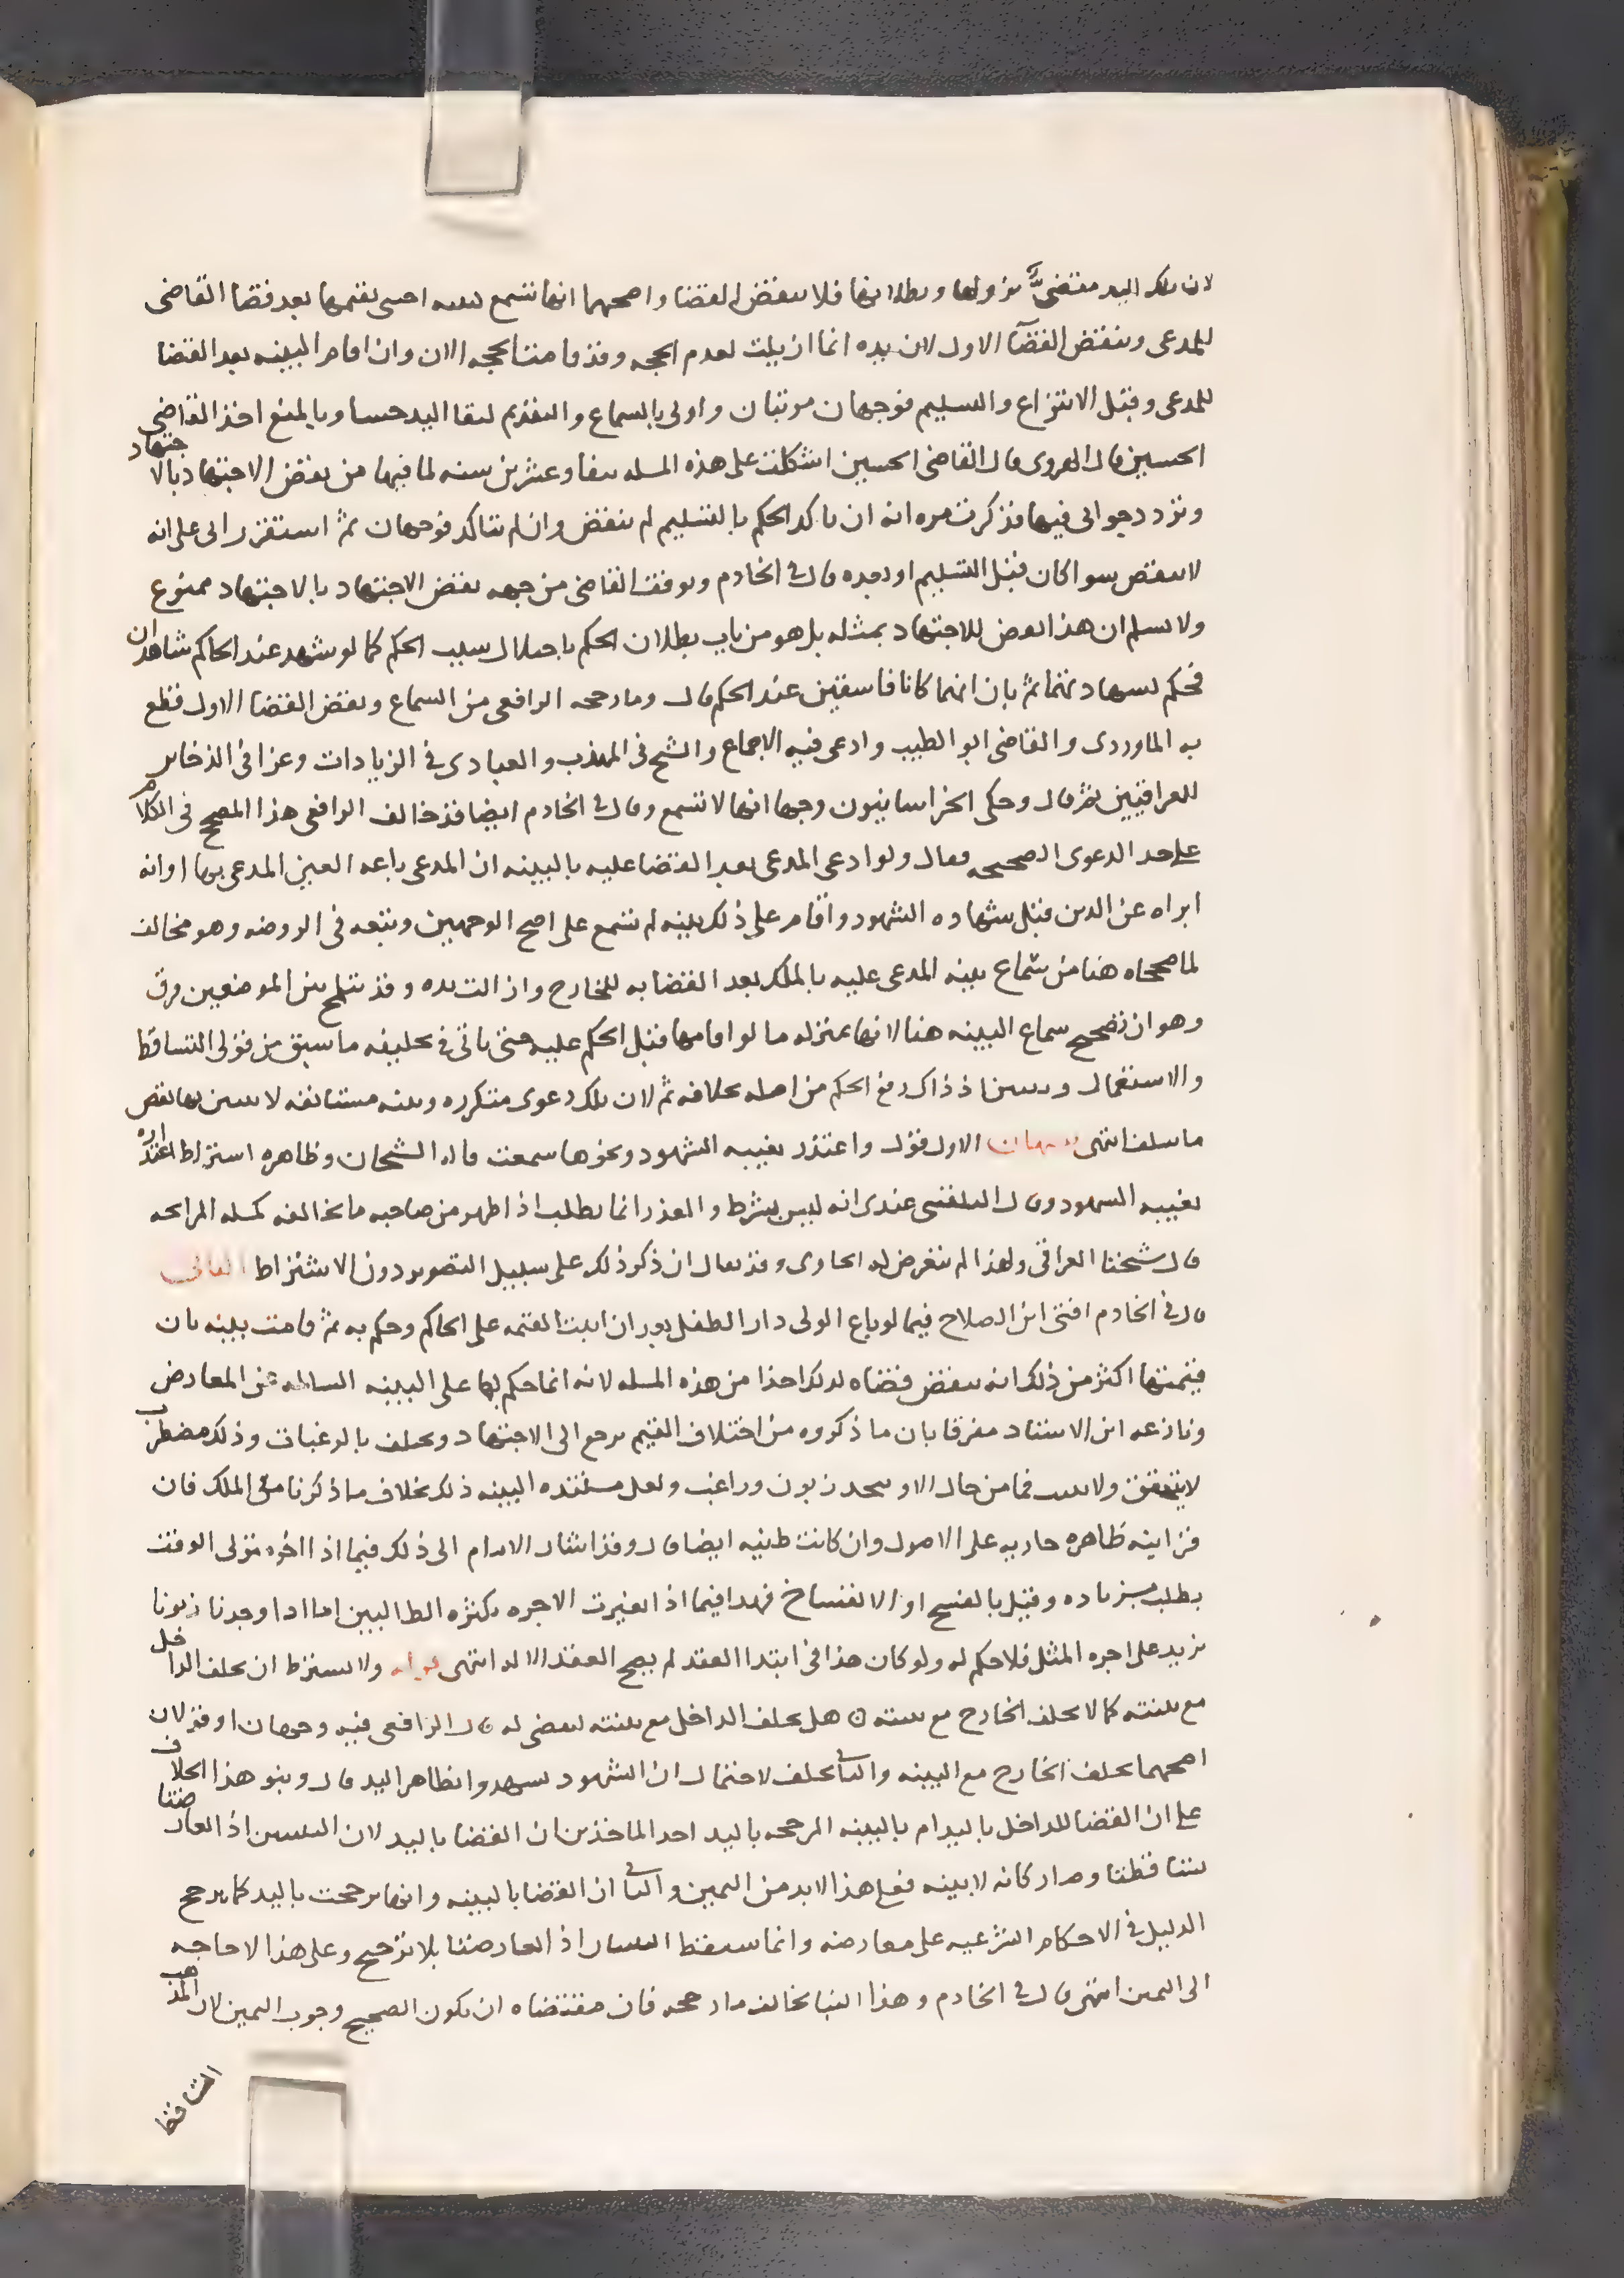 لان تلك اليد مقتضي بزوالها وبطلانها فلا ينقض القضا واصحهما انها تسمع بينته احسن يقيمها بعد قضا القاضي
للمدعي وينقض القضآ الاول لان يده انما ازيلت لعدم الحجه وقد قامت الحجه الان وان اقام البينه بعد القضا
للمدعي وقبل الانتزاع والتسليم فوجهان مرتبان واولي بالسماع والتقديم لبقا اليد حسا وبالمنع اخذ القاضي
الحسين قال الهروي قال القاضي الحسين اشكلت علي هذه المسله نيفا وعشرين سنه لما فيها من نقض الاجتهاد بالاجتهاد
وتردد جوابي فيها فذكرت مره انه ان تاكد الحكم بالتسليم لم ينقض وان لم يتاكد فوجهان ثم استقر رايي علي انه
لا ينقض سوا كان قبل التسليم او بعده قال في الخادم وتوقف القاضي من جهه نقض الاجتهاد بالاجتهاد ممنوع
ولا نسلم ان هذا نقض للاجتهاد بمثله بل هو من باب بطلان الحكم باختلال سبب الحكم كما لو شهد عند الحاكم شاهدان
فحكم بشهادتهما ثم بان انهما كانا فاسقين عند الحكم قال وما رجحه الرافعي من السماع ونقض القضا الاول قطع
به الماوردي والقاضي ابو الطيب وادعي فيه الاجماع والشيخ في المهذب والعبادي في الزيادات وعزا في الذخاير
للعراقيين ثم قال وحكي الخراسانيون وجها انها لا تسمع وقال في الخادم ايضا قد خالف الرافعي هذا المصحح في الكلام
علي حد الدعوي الصحيحه فقال ولو ادعي المدعي بعد القضا عليه بالبينه ان المدعي باعه العين المدعي بها او انه
ابراه عن الدين قبل شهاده الشهود واقام علي ذلك بينه لم تسمع علي اصح الوجهين وتبعه في الروضه وهو مخالف
لما صححاه هنا من سماع بينه المدعي عليه بالملك بعد القضا به للخارج وازالت يده وقد يتلمح بين الموضعين فرق
وهو ان تصحيح سماع البينه هنا لانها بمنزله ما لو اقامها قبل الحكم عليه حتي ياتي في تحليفه ما سبق من قولي التساقط
والاستعمال وتبينا اذ ذاك رفع الحكم من اصله بخلافه ثم لان تلك دعوي متكرره وبينه مستانفه لا يتبين بها نقض
ما سلف انتهي تنبيهان الاول قوله واعتذر بغيبه الشهود ونحوها سمعت قاله الشيخان وظاهره اشتراط اعتذاره
بغيبه الشهود وقال البلقيني عندي انه ليس بشرط والعذر انما يطلب اذا ظهر من صاحبه ما يخالفه كمسله المرابحه
قال شيخنا العراقي ولهذا لم يتعرض له الحاوي وقد يقال ان ذكر ذلك علي سبيل التصوير دون الاشتراط الثاني
قال في الخادم افتي ابن الصلاح فيما لو باع الولي دار الطفل بعد ان اثبت القيمه علي الحاكم وحكم به ثم قامت بينه بان
قيمتها اكثر من ذلك انه ينقض قضاه لذلك اخذا من هذه المسله لانه انما حكم بها علي البينه السالمه عن المعارض
ونازعه ابن الاستاد مفرقا بان ما ذكروه من اختلاف القيم يرجع الي الاجتهاد ويختلف بالرغبات وذلك مضطرب
لا يتحقق ولا يثبت فما من حال الا ويتجدد زبون وراغب ولعل مستنده البينه ذلك بخلاف ما ذكرنا من الملك فان
قراينه ظاهره جاريه علي الاصول وان كانت ظنيه ايضا قال وقد اشار الامام الي ذلك فيما اذا اجره متولي الوقف
بطلب بزياده وقيل بالفسخ او الانفساخ فهذا فيما اذا تغيرت الاجره بكثره الطالبين اما اذا وجدنا زبونا
يزيد علي اجره المثل فلا حكم له ولو كان هذا في ابتدا العقد لم يصح العقد الا له انتهي قوله ولا يشترط ان يحلف الداخل
مع بينته كما لا يحلف الخارج مع بينته هل يحلف الداخل مع بينته ليقضي له قال الرافعي فيه وجهان او قولان
اصحهما يحلف الخارج مع البينه والثاني يحلف لاحتمال ان الشهود شهدوا بظاهر اليد قال وبنو هذا الخلاف
علي ان القضا للداخل باليد ام بالبينه المرجحه باليد احد الماخذين ان القضا باليد لان البينتين اذ تعارضتا
تساقطتا وصار كانه لا بينه فعلي هذا لا بد من اليمين والثاني ان القضا بالبينه وانها ترجحت باليد كما يرجح
الدليل في الاحكام الشرعيه علي معارضه وانما تسقط البينتان اذ تعارضتا بلا ترجيح وعلي هذا لا حاجه
الي اليمين انتهي قال في الخادم وهذا البنا يخالف ما رجحه فان مقتضاه ان يكون الصحيح وجوب اليمين لان المذهب
التساقط